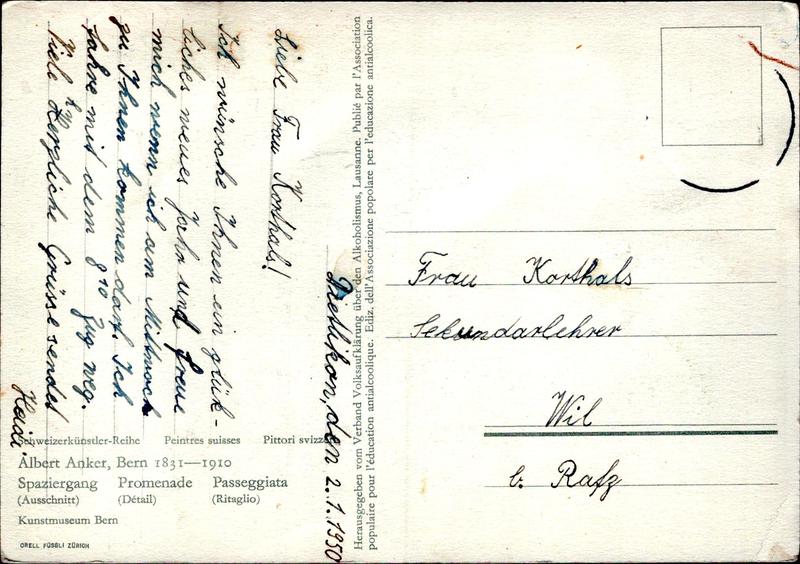 Dietlikon, den 2.1.1950
Liebe Frau Korthals!
Ich wünsche Ihnen ein glück-
liches neues Jahr und freue
mich wenn ich am Mittwoch
zu Ihnen kommen darf. Ich
fahre mit dem 8 Zug weg.
Viele herzliche Grüsse sendet
Heidi
Schweizerkünstler-Reihe Peintres suisses Pittori svizzeri
Albert Anker, Bern 1831—1910
Spaziergang Promenade Passeggiata
(Ausschnitt) (Détail) (Ritaglio)
Kunstmuseum Bern
ORELL FÜSSLI ZÜRICH
Herausgegeben vom Verband Volksaufklärung über den Alkoholismus, Lausanne. Publié par l'Association
populaire pour l'éducation antialcoolique. Ediz. dell'Associazione popolare per l'educazione antialcoolica.
Frau Korthals
Sekundarlehrer
Wil
b. Rafz